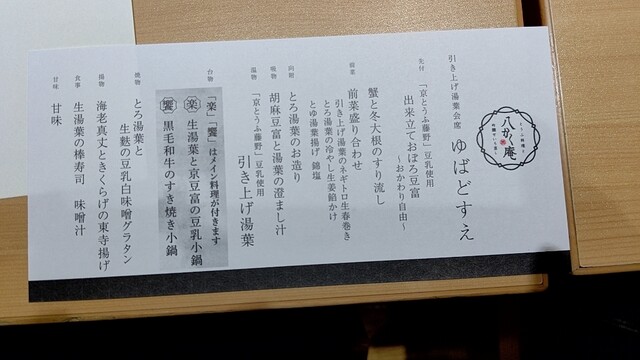 八かく庵
引き上げ湯葉会席 ゆばどすえ
先付 「京とうふ藤野」豆乳使用
出来立ておぼろ豆富
～おかわり自由～
蟹と冬大根のすり流し
前菜 前菜盛り合わせ
引き上げ湯葉のネギトロ生春巻き
とろ湯葉の冷やし生姜餡かけ
とゆ湯葉揚げ 錦塩
向附 とろ湯葉のお造り
吸物 胡麻豆富と湯葉の澄まし汁
温物 「京とうふ藤野」豆乳使用
引き上げ湯葉
台物 「楽」「饗」はメイン料理が付きます
楽 生湯葉と京豆富の豆乳小鍋
饗 黒毛和牛のすき焼き小鍋
焼物 とろ湯葉と
生麩の豆乳白味噌グラタン
揚物 海老真丈ときくらげの東寺揚げ
食事 生湯葉の棒寿司 味噌汁
甘味 甘味